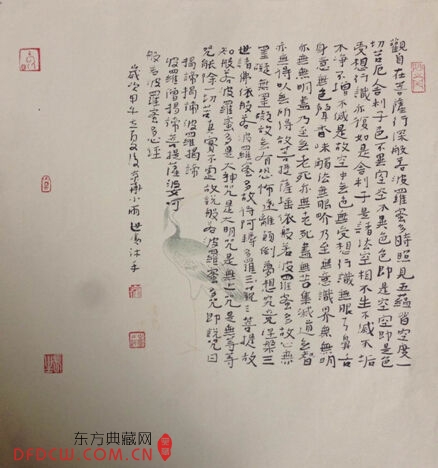 觀自在菩薩行深般若波羅蜜多時照見五蘊皆空度一
切苦厄舍利子色不異空空不異色色即是空空即是色
受想行識亦復如是舍利子是諸法空相不生不滅不垢
不淨不增不減是故空中無色無受想行識無眼耳鼻舌
身意無色聲香味觸法無眼界乃至無意識界無無明
亦無無明盡乃至無老死亦無老死盡無苦集滅道無智
亦無得以無所得故菩提薩埵依般若波羅蜜多故心無
罣礙無罣礙故無有恐怖遠離顛倒夢想究竟涅槃三
世諸佛依般若波羅蜜多故得阿耨多羅三藐三菩提故
知般若波羅蜜多是大神咒是大明咒是無上咒是無等等
咒能除一切苦真實不虛故說般若波羅蜜多咒即說咒曰
揭諦揭諦波羅揭諦
波羅僧揭諦菩提薩婆訶
般若波羅蜜多心經
歲次甲午 小雨 沐手
东方典藏网
DFDCW.COM.CN